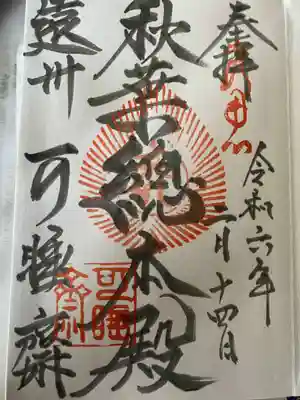 奉拝
令和六年
二月十四日
秋葉總本殿
遠州 可睡齋